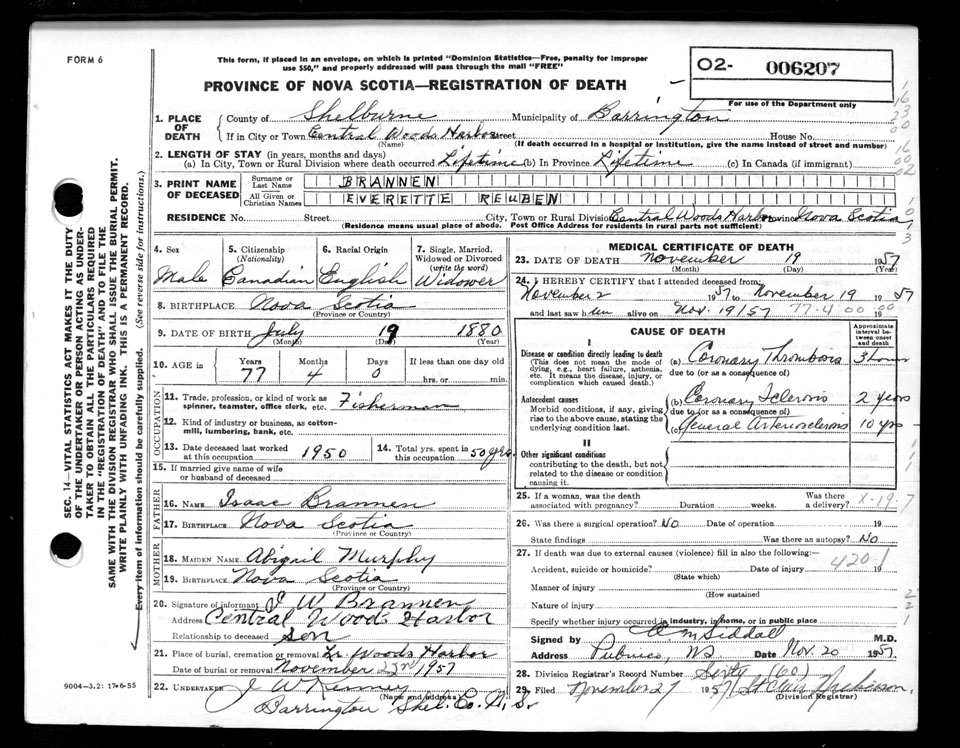 FORM 6
This form, if placed in an envelope, on which is printed "Dominion Statistics—Free, penalty for improper
use $50," and properly addressed will pass through the mail "FREE"
PROVINCE OF NOVA SCOTIA—REGISTRATION OF DEATH
02- 006207
For use of the Department only
1. PLACE OF DEATH
County of Shelburne Municipality of Barrington
If in City or Town Central Woods Harbor Street House No.
(Name) (If death occurred in a hospital or institution, give the name instead of street and number)
2. LENGTH OF STAY (in years, months and days)
(a) In City, Town or Rural Division where death occurred Lifetime (b) In Province Lifetime (c) In Canada (if immigrant)
3. PRINT NAME OF DECEASED
Surname or Last Name BRANNEN
All Given or Christian Names EVERETTE REUBEN
RESIDENCE No. Street City, Town or Rural Division Central Woods Harbor Province Nova Scotia
(Residence means usual place of abode. Post Office Address for residents in rural parts not sufficient)
4. Sex Male
5. Citizenship (Nationality) Canadian
6. Racial Origin English
7. Single, Married, Widowed or Divorced (write the word) Widower
8. BIRTHPLACE Nova Scotia
(Province or Country)
9. DATE OF BIRTH July 19 1880
(Month) (Day) (Year)
10. AGE in Years Months Days If less than one day old
77 4 0 hrs. or min.
OCCUPATION
11. Trade, profession, or kind of work as spinner, teamster, office clerk, etc. Fisherman
12. Kind of industry or business, as cotton-mill, lumbering, bank, etc.
13. Date deceased last worked at this occupation 1950
14. Total yrs. spent in this occupation 50 yrs.
15. If married give name of wife or husband of deceased
FATHER
16. NAME Isaac Brannen
17. BIRTHPLACE Nova Scotia
(Province or Country)
MOTHER
18. MAIDEN NAME Abigail Murphy
19. BIRTHPLACE Nova Scotia
(Province or Country)
20. Signature of informant W Brannen
Address Central Woods Harbor
Relationship to deceased Son
21. Place of burial, cremation or removal Lr. Woods Harbor
Date of burial or removal November 23rd 1957
22. UNDERTAKER J W
(Name and address)
Barrington Shel. Co. N.S.
MEDICAL CERTIFICATE OF DEATH
23. DATE OF DEATH November 19 1957
(Month) (Day) (Year)
24. I HEREBY CERTIFY that I attended deceased from
November 2 1957 to November 19 1957
and last saw him alive on Nov. 19/57 77-4 00 00
CAUSE OF DEATH
Approximate interval between onset and death
I
Disease or condition directly leading to death
(This does not mean the mode of dying, e.g., heart failure, asthenia, etc. It means the disease, injury, or complication which caused death.)
(a) Coronary Thrombosis 3 hours
due to (or as a consequence of)
Antecedent causes
Morbid conditions, if any, giving rise to the above cause, stating the underlying condition last.
(b) Coronary Sclerosis 2 years
due to (or as a consequence of)
(c) General Arteriosclerosis 10 yrs
II
Other significant conditions
contributing to the death, but not related to the disease or condition causing it.
25. If a woman, was the death associated with pregnancy? Duration weeks. Was there a delivery?
X-19-7
26. Was there a surgical operation? No Date of operation 19
State findings Was there an autopsy? No
27. If death was due to external causes (violence) fill in also the following:—
Accident, suicide or homicide? Date of injury 19
4201
(State which)
Manner of injury
(How sustained
Nature of injury
Specify whether injury occurred in industry, in home, or in public place
Signed by A M Siddall M.D.
Address Pubnico, NS Date Nov. 20 1957
28. Division Registrar's Record Number Sixty (60)
29. Filed November 27 1957
(Division Registrar)
SEC. 14—VITAL STATISTICS ACT MAKES IT THE DUTY
OF THE UNDERTAKER OR PERSON ACTING AS UNDER-
TAKER TO OBTAIN ALL THE PARTICULARS REQUIRED
IN THE "REGISTRATION OF DEATH" AND TO FILE THE
SAME WITH THE DIVISION REGISTRAR WHO SHALL ISSUE THE BURIAL PERMIT.
WRITE PLAINLY WITH UNFADING INK. THIS IS A PERMANENT RECORD.
Every item of information should be carefully supplied. (See reverse side for instructions.)
9004-3.2: 17-6-55